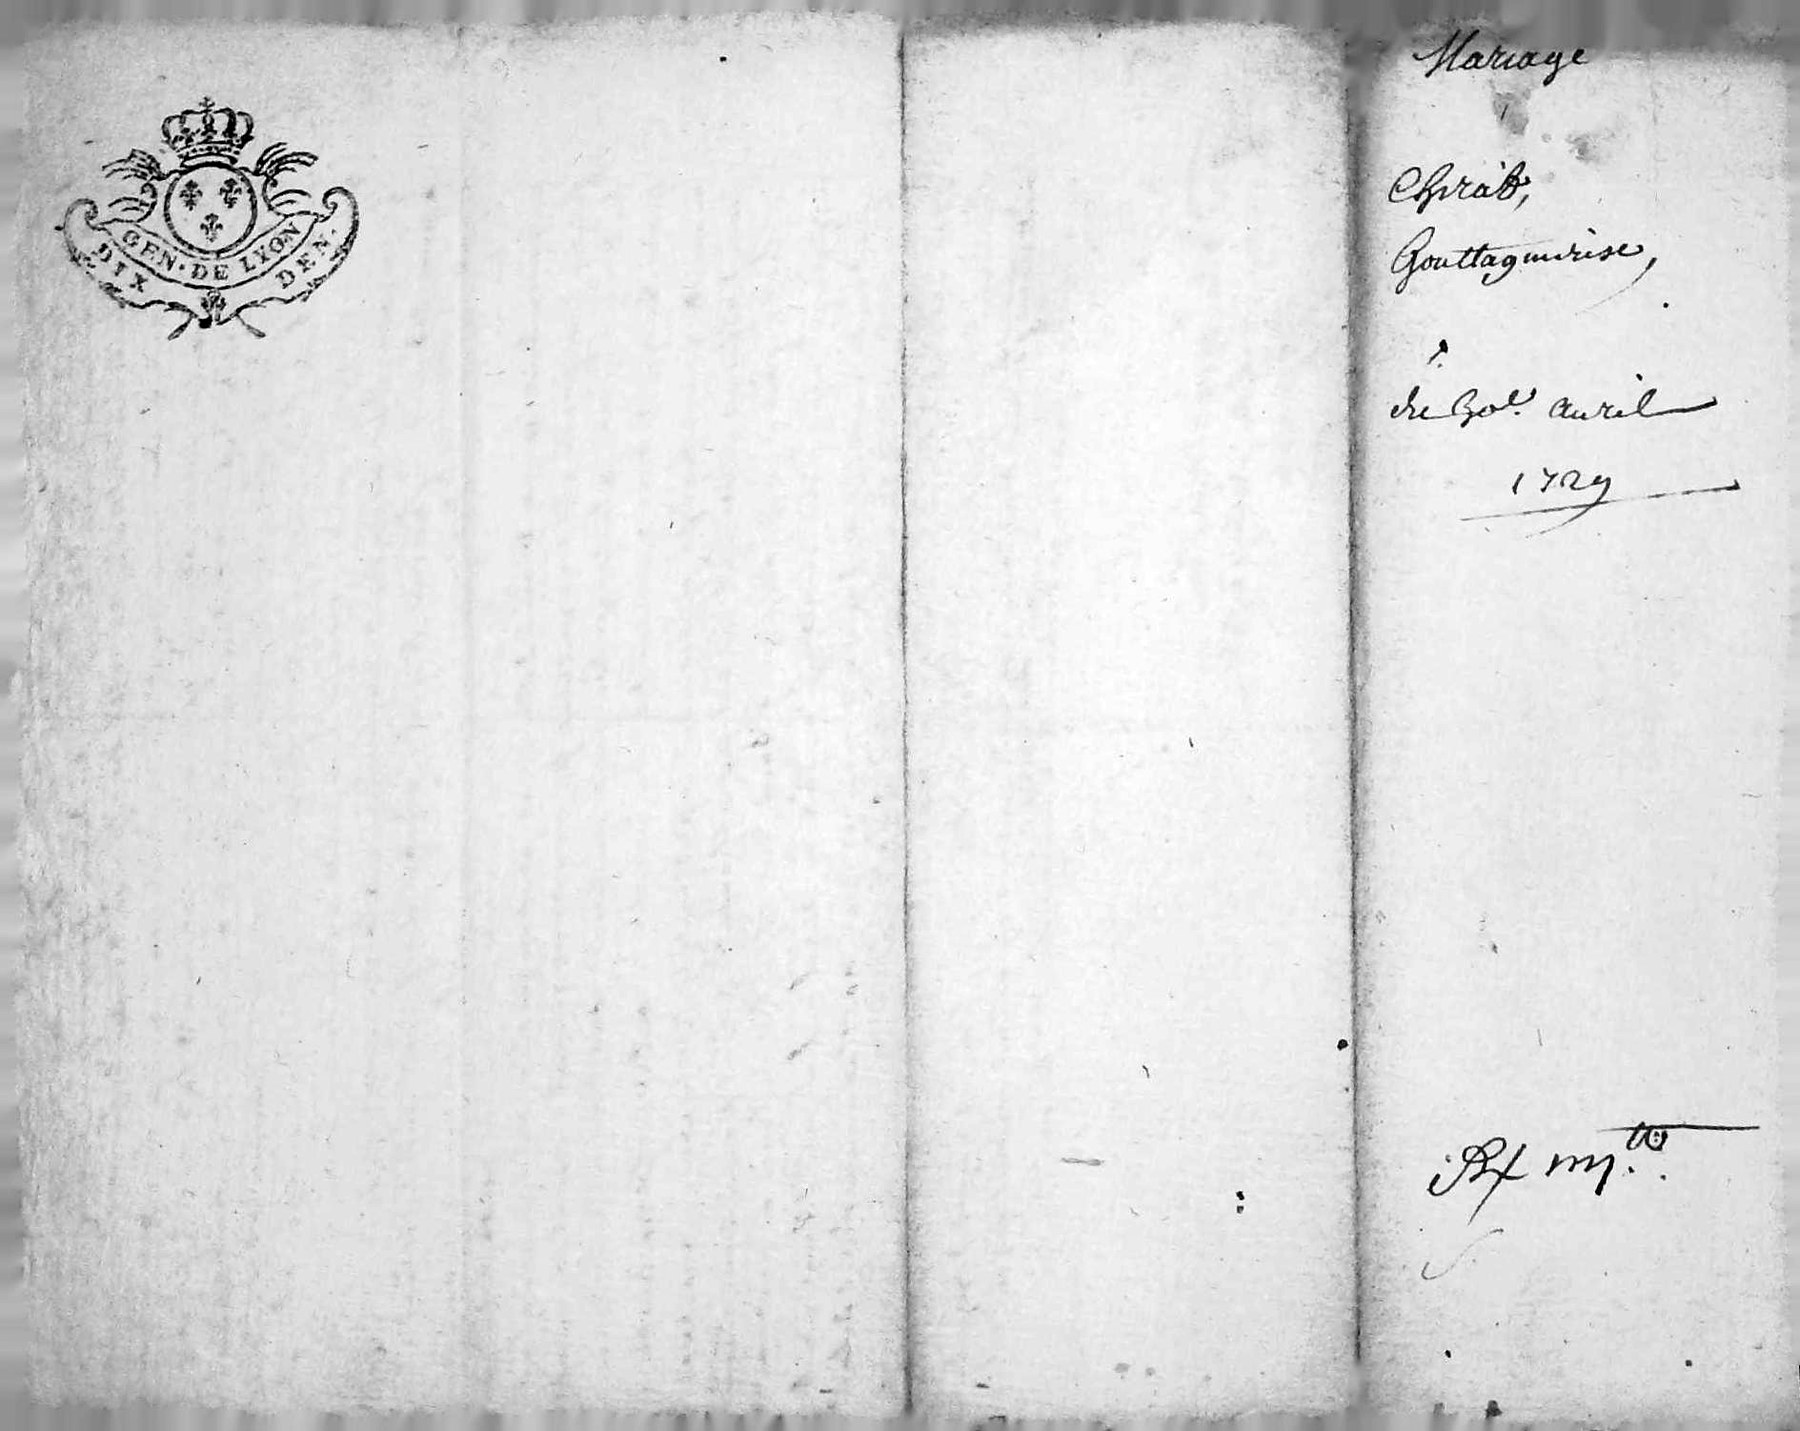 GEN. DE LYON
DIX DEN.
Mariage
Chirat,
Gouttagnierise,
du 30e. avril
1729